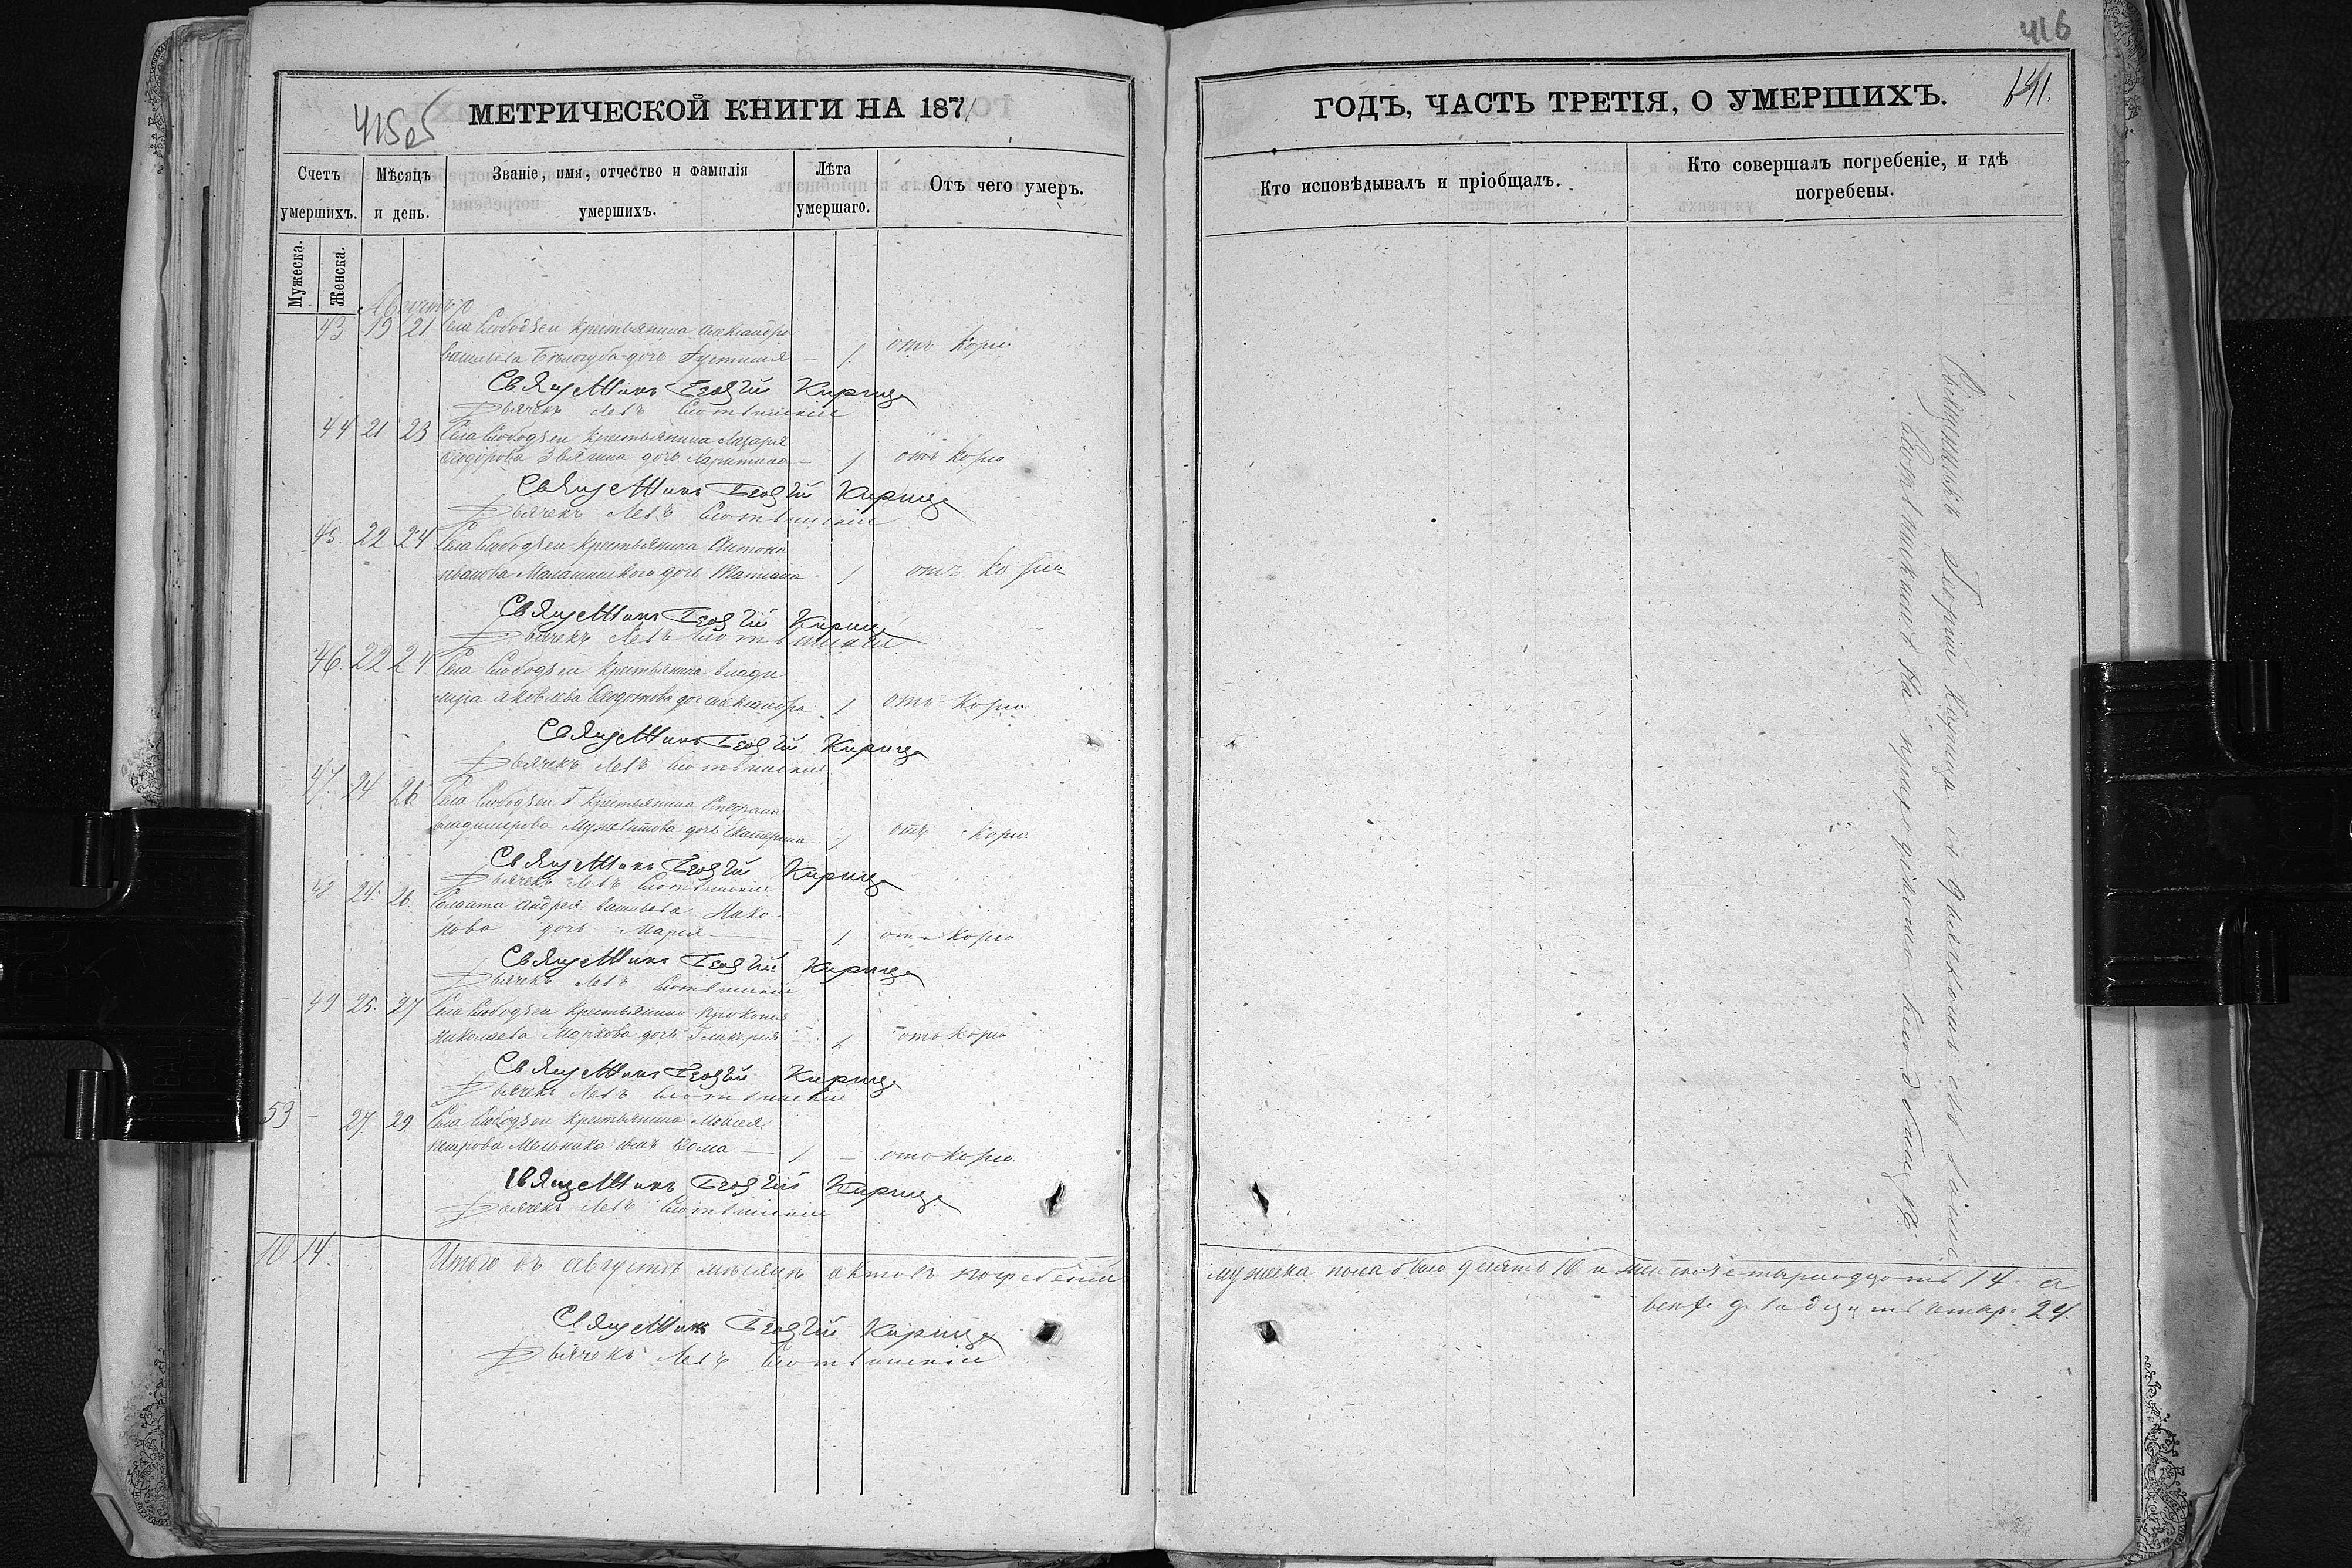 415об
МЕТРИЧЕСКОЙ КНИГИ НА 1871
Счетъ умершихъ.
Мѣсяцъ и день.
Званіе, имя, отчество и фамилія умершихъ.
Лѣта умершаго.
Отъ чего умеръ.
Мужеска.
Женска.
Августъ
43 19 21 Села Слободзеи крестьянина Александра
Васильева Бѣлогуба дочь Іустинія — 1. отъ кори
Священникъ Георгій Кирица
Дьячекъ Левъ
44 21 23 Села Слободзеи крестьянина Лазаря
дочь — 1 отъ кори
Священникъ Георгій Кирица
Дьячекъ Левъ
45. 22 24 Села Слободзеи крестьянина Антона
Иванова дочь Татіана 1 отъ кори
Священникъ Георгій Кирица
Дьячекъ Левъ
46. 22 24. Села Слободзеи крестьянина Влади
мира Яковлева Ѳедотова дочь Александра 1 отъ кори
Священникъ Георгій Кирица
Дьячекъ Левъ
47. 24 26 Села Слободзеи крестьянина Стефана
Владимирова дочь Екатерина — 1 отъ кори
Священникъ Георгій Кирица
Дьячекъ Левъ
48 24. 26. Солдата Андрея Васильева Нако-
нова дочь Марія — 1. отъ кори
Священникъ Георгій Кирица
Дьячекъ Левъ
49 25. 27 Села Слободзеи крестьянина Прокопія
Николаева Маркова дочь Гликерія 1 отъ кори
Священникъ Георгій Кирица
Дьячекъ Левъ
53 — 27. 29. Села Слободзеи крестьянина Моисея
Петрова Мельника сынъ Ѳома — 1. — отъ кори
Священникъ Георгій Кирица
Дьячекъ Левъ
10 14. Итого въ августѣ мѣсяцѣ актовъ погребенія
Священникъ Георгій Кирица
Дьячекъ Левъ
416
ГОДЪ, ЧАСТЬ ТРЕТІЯ, О УМЕРШИХЪ.
Кто исповѣдывалъ и пріобщалъ.
Кто совершалъ погребеніе, и гдѣ погребены.
Священникъ Георгій Кирица съ дьячкомъ
на приходскомъ кладбищѣ.
мужеска пола было десять 10 и женска четырнадцать 14 а
всего двадцать четыре 24.